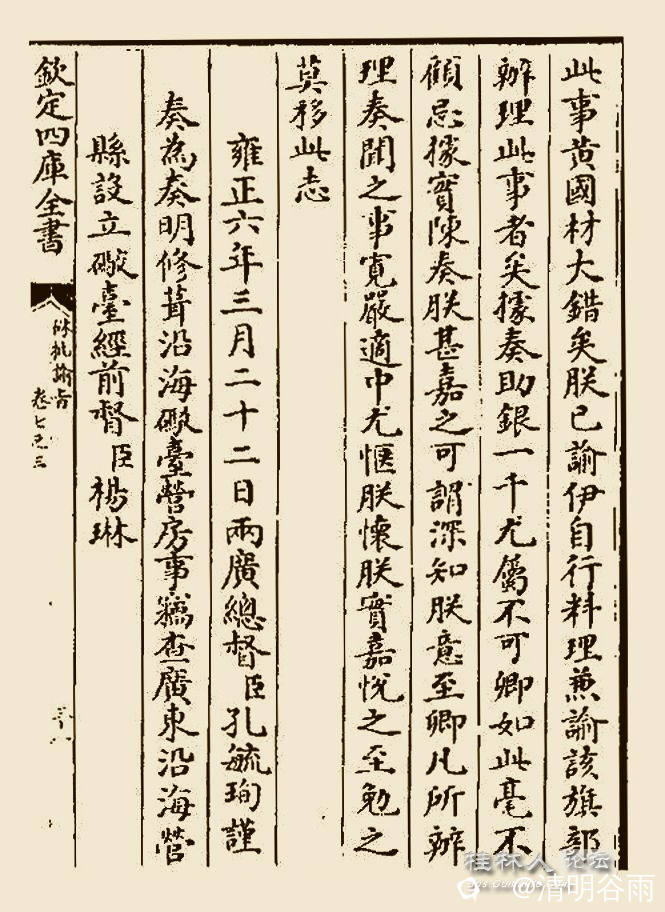 此事黄國材大錯矣朕已諭伊自行料理兼諭該旗部
辦理此事者矣據奏助銀一千尤屬不可卿如此毫不
顧忌據實陳奏朕甚嘉之可謂深知朕意至卿凡所辦
理奏聞之事寛嚴適中尤愜朕懷朕實嘉悅之至勉之
莫移此志
雍正六年三月二十二日兩廣總督臣孔毓珣謹
奏為奏明修葺沿海礮臺營房事竊查廣東沿海營
縣設立礮臺經前督臣楊琳
欽定四庫全書
硃批諭旨
卷七之三
桂林人论坛
@清明谷雨